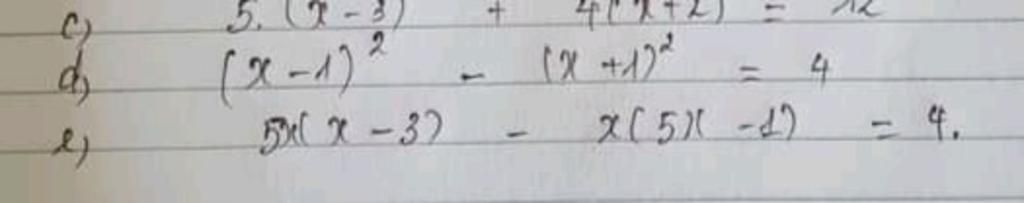 c) 5. (x - 3) + 4(x+2) = 12
d) (x - 1)² - (x + 1)² = 4
e) 5x(x - 3) - x(5x - 1) = 4.